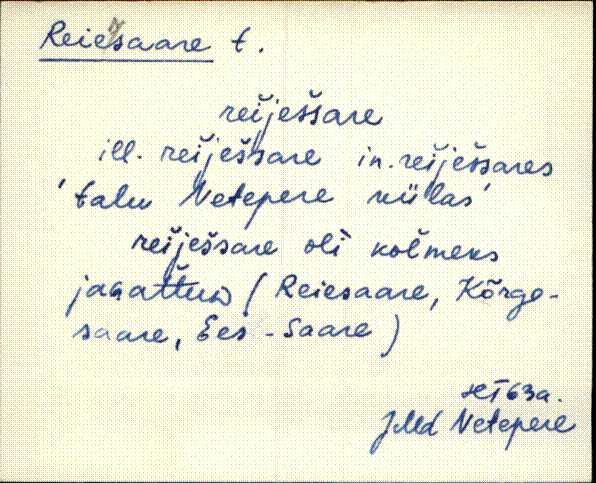 Reiesaare t.
reiješsare
ill. reiješsare in. reiješsares
'talu Netepere külas'
reiješsare oli kolmeks
jagattuD (Reiesaare, Kõrge-
saare, Ees-Saare)
HT 63a.
JMd Netepere